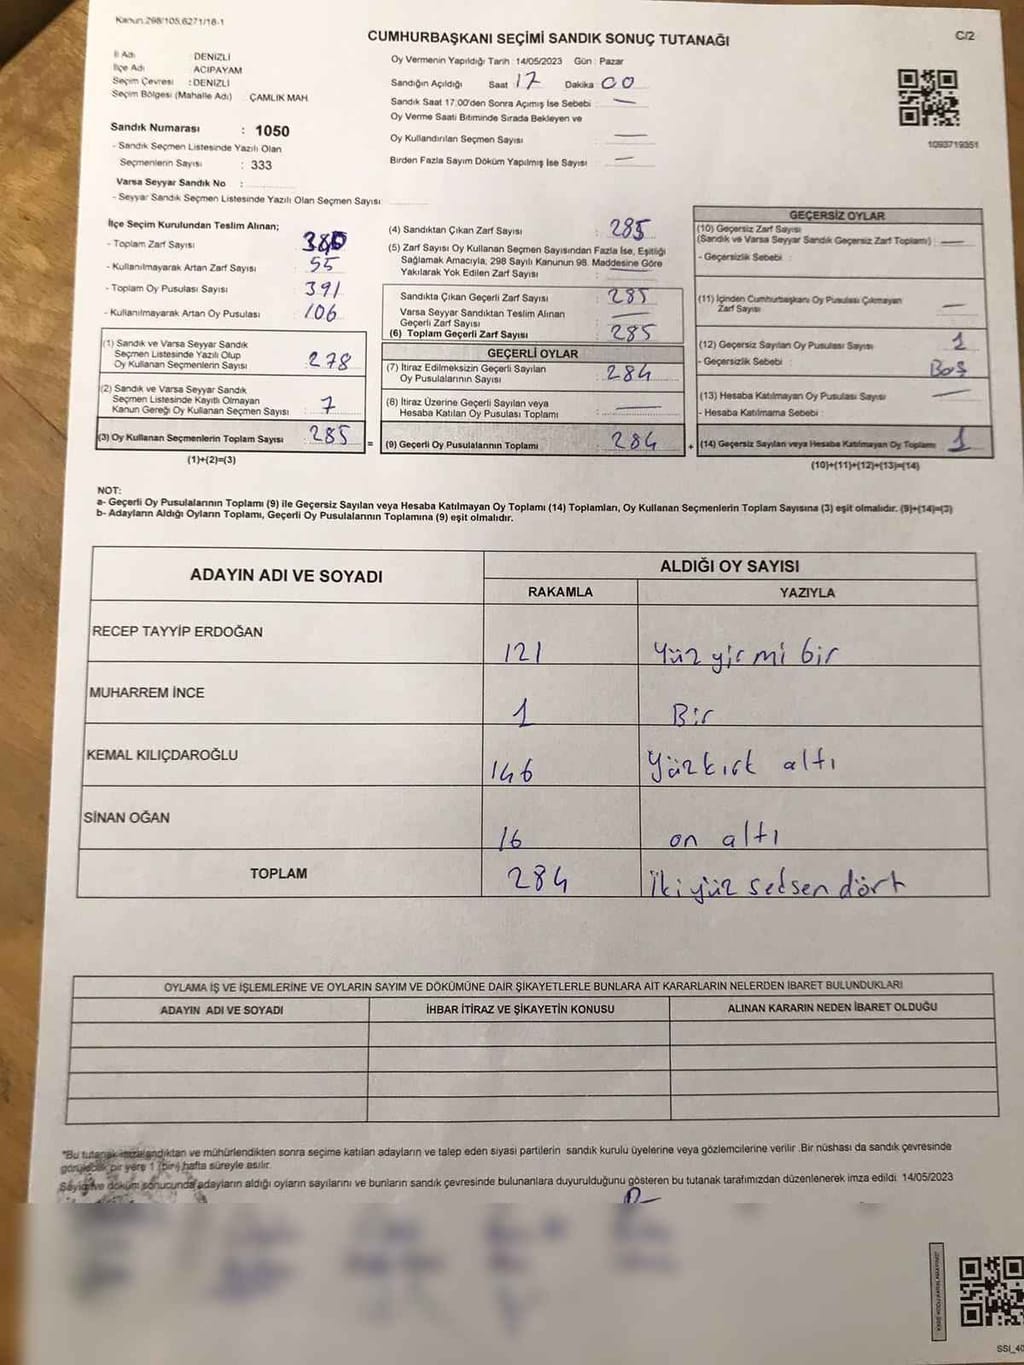 Kanun:298/105,6271/16-1
C/2
CUMHURBAŞKANI SEÇİMİ SANDIK SONUÇ TUTANAĞI
İl Adı : DENİZLİ
İlçe Adı : ACIPAYAM
Seçim Çevresi : DENİZLİ
Seçim Bölgesi (Mahalle Adı) : ÇAMLIK MAH.
Sandık Numarası : 1050
- Sandık Seçmen Listesinde Yazılı Olan
Seçmenlerin Sayısı : 333
Varsa Seyyar Sandık No :
- Seyyar Sandık Seçmen Listesinde Yazılı Olan Seçmen Sayısı
Oy Vermenin Yapıldığı Tarih : 14/05/2023 Gün : Pazar
Sandığın Açıldığı Saat 17 Dakika 00
Sandık Saat 17:00'den Sonra Açımış İse Sebebi : —
Oy Verme Saati Bitiminde Sırada Bekleyen ve
Oy Kullandırılan Seçmen Sayısı —
Birden Fazla Sayım Döküm Yapılmış İse Sayısı : —
1093719351
İlçe Seçim Kurulundan Teslim Alınan;
- Toplam Zarf Sayısı
- Kullanılmayarak Artan Zarf Sayısı : 55
- Toplam Oy Pusulası Sayısı : 391
- Kullanılmayarak Artan Oy Pusulası : 106
(1) Sandık ve Varsa Seyyar Sandık
Seçmen Listesinde Yazılı Olup
Oy Kullanan Seçmenlerin Sayısı : 278
(2) Sandık ve Varsa Seyyar Sandık
Seçmen Listesinde Kayıtlı Olmayan
Kanun Gereği Oy Kullanan Seçmen Sayısı : 7
(3) Oy Kullanan Seçmenlerin Toplam Sayısı : 285
(1)+(2)=(3)
(4) Sandıktan Çıkan Zarf Sayısı : 285
(5) Zarf Sayısı Oy Kullanan Seçmen Sayısından Fazla İse, Eşitliği
Sağlamak Amacıyla, 298 Sayılı Kanunun 98. Maddesine Göre
Yakılarak Yok Edilen Zarf Sayısı :
Sandıkta Çıkan Geçerli Zarf Sayısı : 285
Varsa Seyyar Sandıktan Teslim Alınan
Geçerli Zarf Sayısı : —
(6) Toplam Geçerli Zarf Sayısı : 285
GEÇERLİ OYLAR
(7) İtiraz Edilmeksizin Geçerli Sayılan
Oy Pusulalarının Sayısı : 284
(8) İtiraz Üzerine Geçerli Sayılan veya
Hesaba Katılan Oy Pusulası Toplamı : —
= (9) Geçerli Oy Pusulalarının Toplamı : 284
GEÇERSİZ OYLAR
(10) Geçersiz Zarf Sayısı
(Sandık ve Varsa Seyyar Sandık Geçersiz Zarf Toplamı) : —
- Geçersizlik Sebebi :
(11) İçinden Cumhurbaşkanı Oy Pusulası Çıkmayan
Zarf Sayısı : —
(12) Geçersiz Sayılan Oy Pusulası Sayısı : 1
- Geçersizlik Sebebi : Boş
(13) Hesaba Katılmayan Oy Pusulası Sayısı : —
- Hesaba Katılmama Sebebi :
+ (14) Geçersiz Sayılan veya Hesaba Katılmayan Oy Toplamı : 1
(10)+(11)+(12)+(13)=(14)
NOT:
a- Geçerli Oy Pusulalarının Toplamı (9) ile Geçersiz Sayılan veya Hesaba Katılmayan Oy Toplamı (14) Toplamları, Oy Kullanan Seçmenlerin Toplam Sayısına (3) eşit olmalıdır. (9)+(14)=(3)
b- Adayların Aldığı Oyların Toplamı, Geçerli Oy Pusulalarının Toplamına (9) eşit olmalıdır.
ADAYIN ADI VE SOYADI
ALDIĞI OY SAYISI
RAKAMLA YAZIYLA
RECEP TAYYİP ERDOĞAN 121 Yüz yirmi bir
MUHARREM İNCE 1 Bir
KEMAL KILIÇDAROĞLU 146 Yüzkırk altı
SİNAN OĞAN 16 on altı
TOPLAM 284 İkiyüz seksen dört
OYLAMA İŞ VE İŞLEMLERİNE VE OYLARIN SAYIM VE DÖKÜMÜNE DAİR ŞİKAYETLERLE BUNLARA AİT KARARLARIN NELERDEN İBARET BULUNDUKLARI
ADAYIN ADI VE SOYADI İHBAR İTİRAZ VE ŞİKAYETİN KONUSU ALINAN KARARIN NEDEN İBARET OLDUĞU
"Bu tutanak imzalandıktan ve mühürlendikten sonra seçime katılan adayların ve talep eden siyasi partilerin sandık kurulu üyelerine veya gözlemcilerine verilir .Bir nüshası da sandık çevresinde
görülebilecek bir yere 1 (bir) hafta süreyle asılır.
Sayım ve döküm sonucunda adayların aldığı oyların sayılarını ve bunların sandık çevresinde bulunanlara duyurulduğunu gösteren bu tutanak tarafımızdan düzenlenerek imza edildi. 14/05/2023